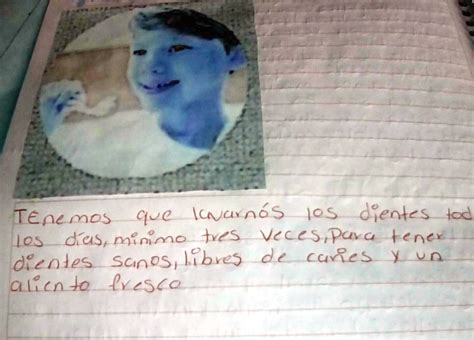 TEnemos que lavarnós los dientes tod
los días, minimo tres veces, para tener
dientes sanos, libres de caries y un
aliento fresco